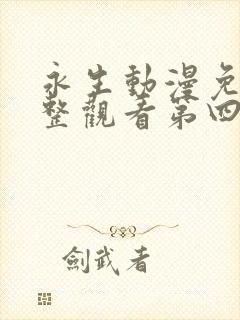 永生動漫免
整觀看第四
劍武者